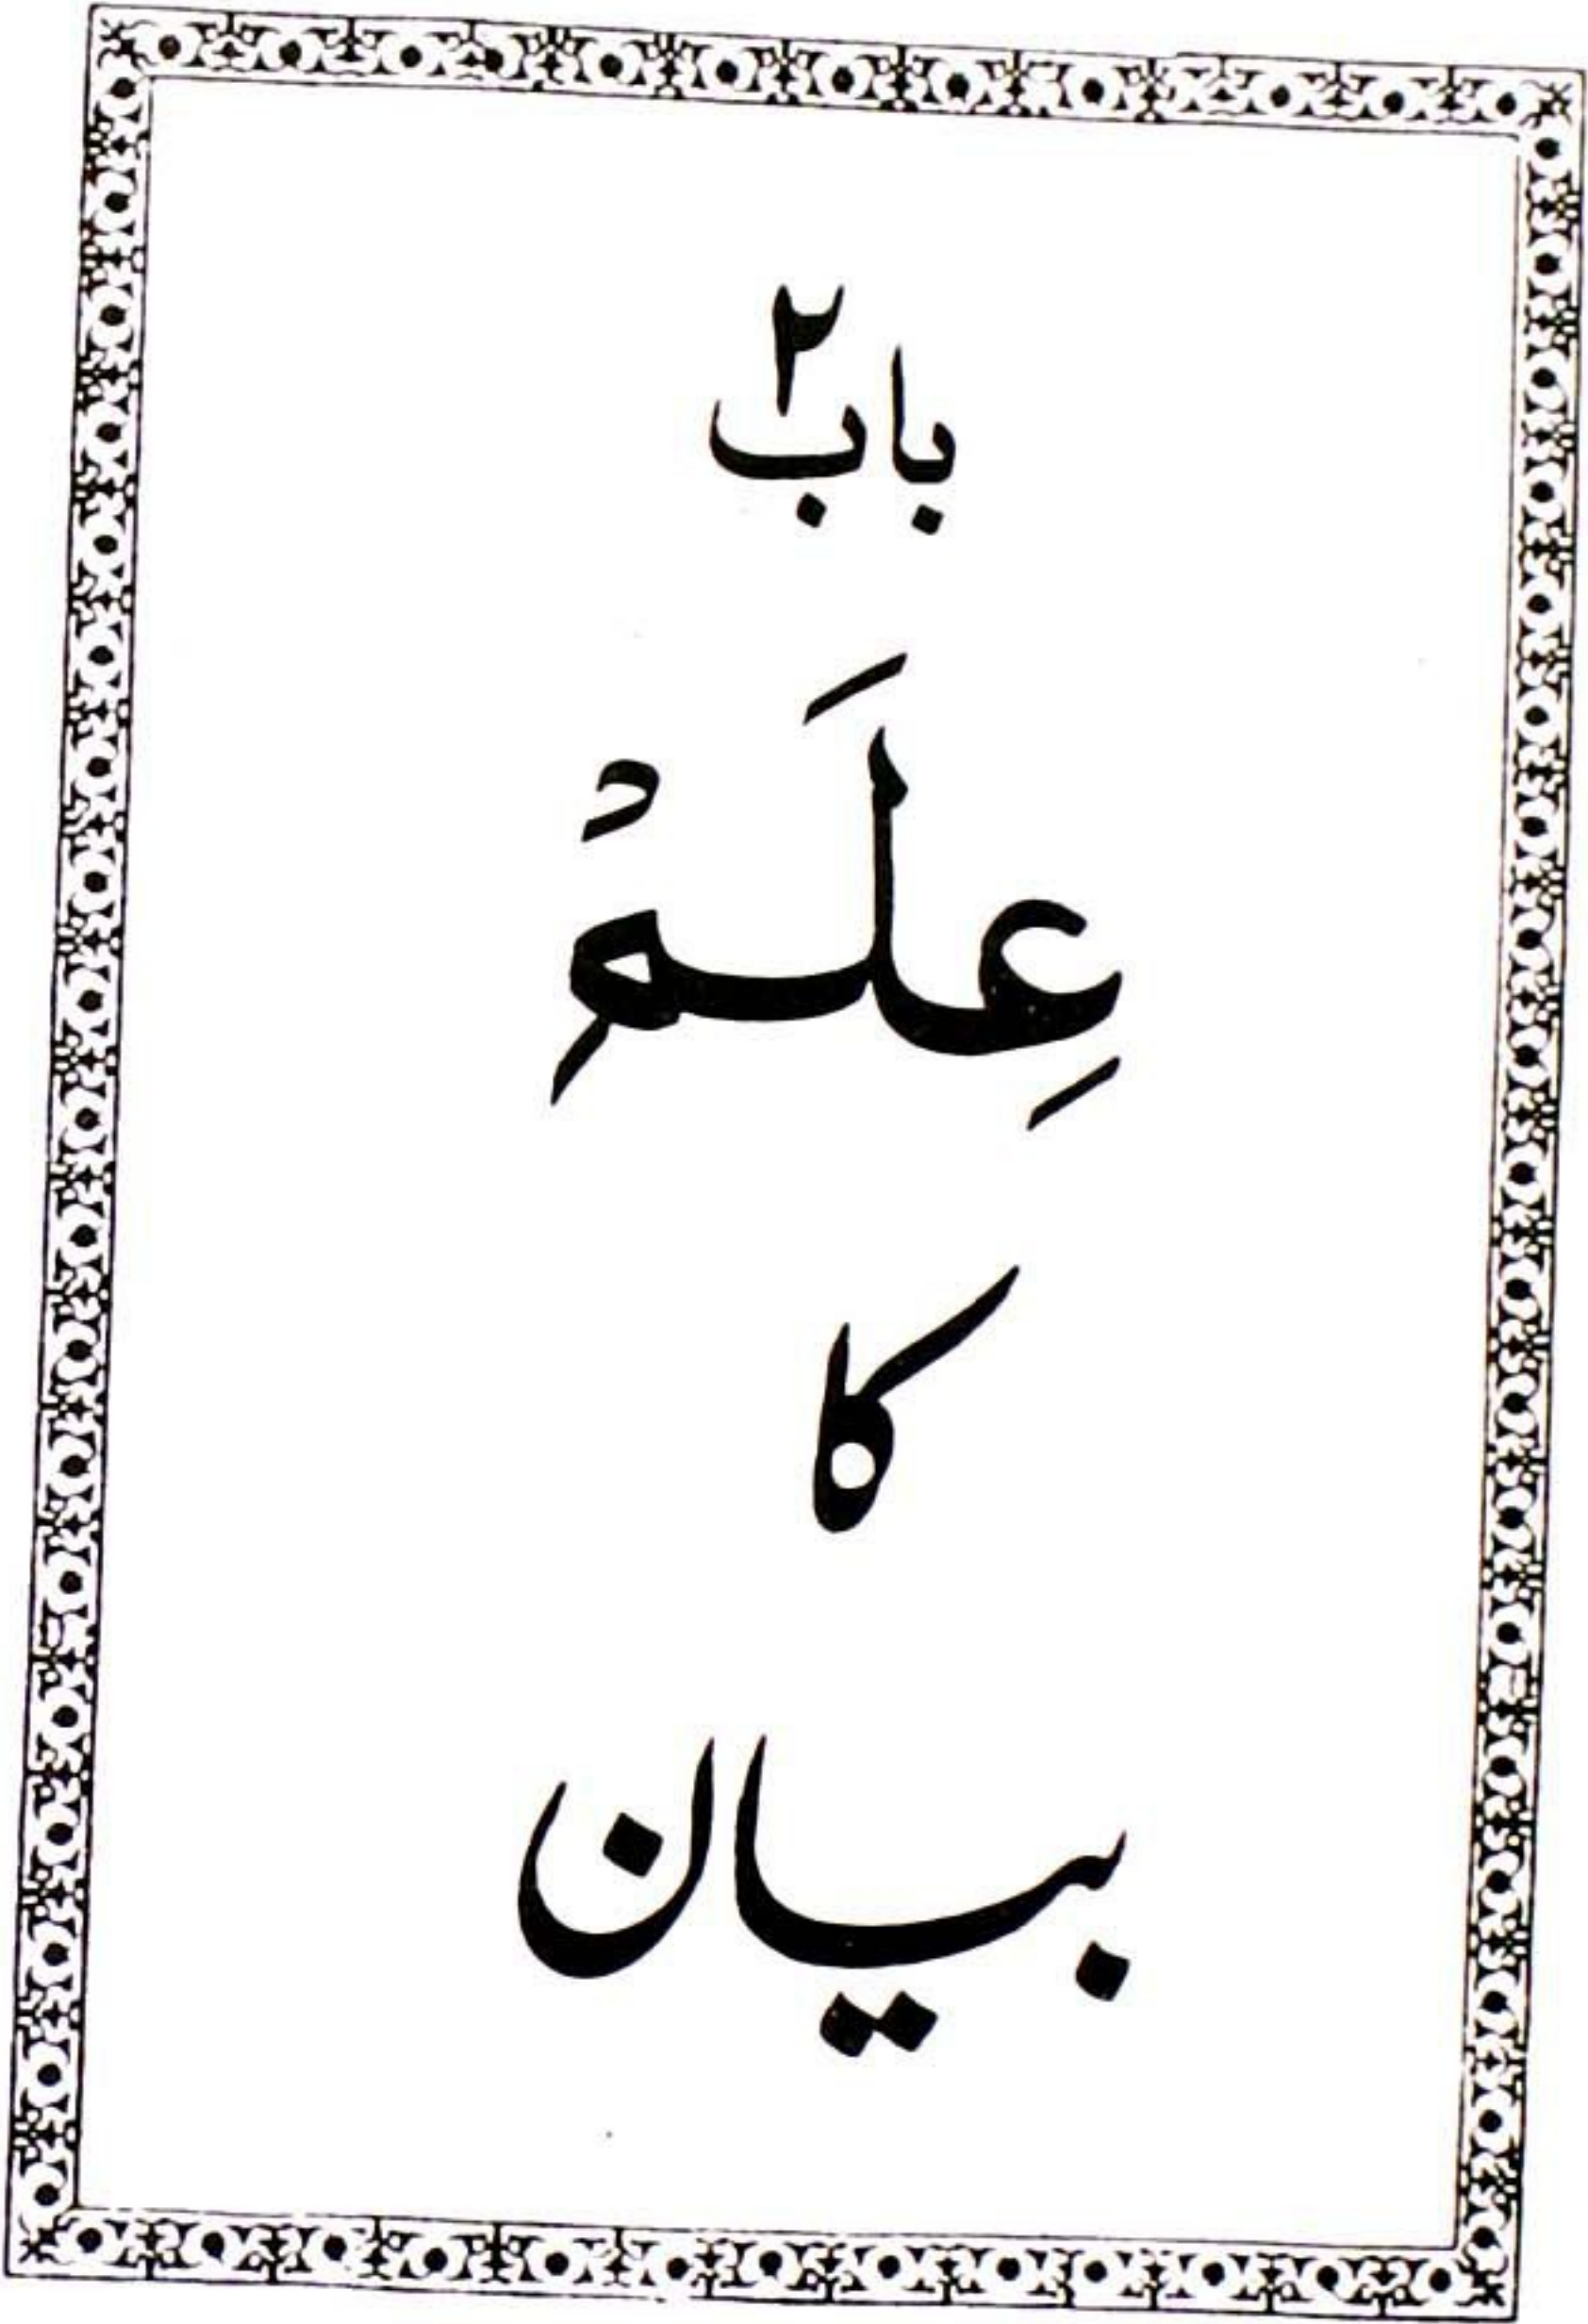 باب ۲
عِلَمْ
کا
بیان